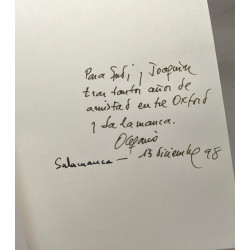 Para Judi y Joaquín
tras tantos años de
amistad entre Oxford
y Salamanca.
Salamanca - 13 diciembre 98